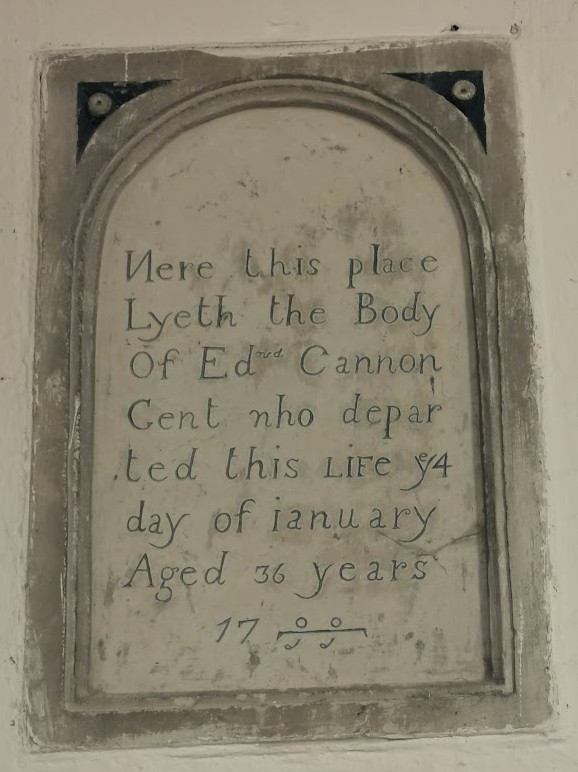 Nere this place
Lyeth the Body
Of Ed^wd Cannon
Gent nho depar
ted this LIFE y^e 4
day of ianuary
Aged 36 years
17